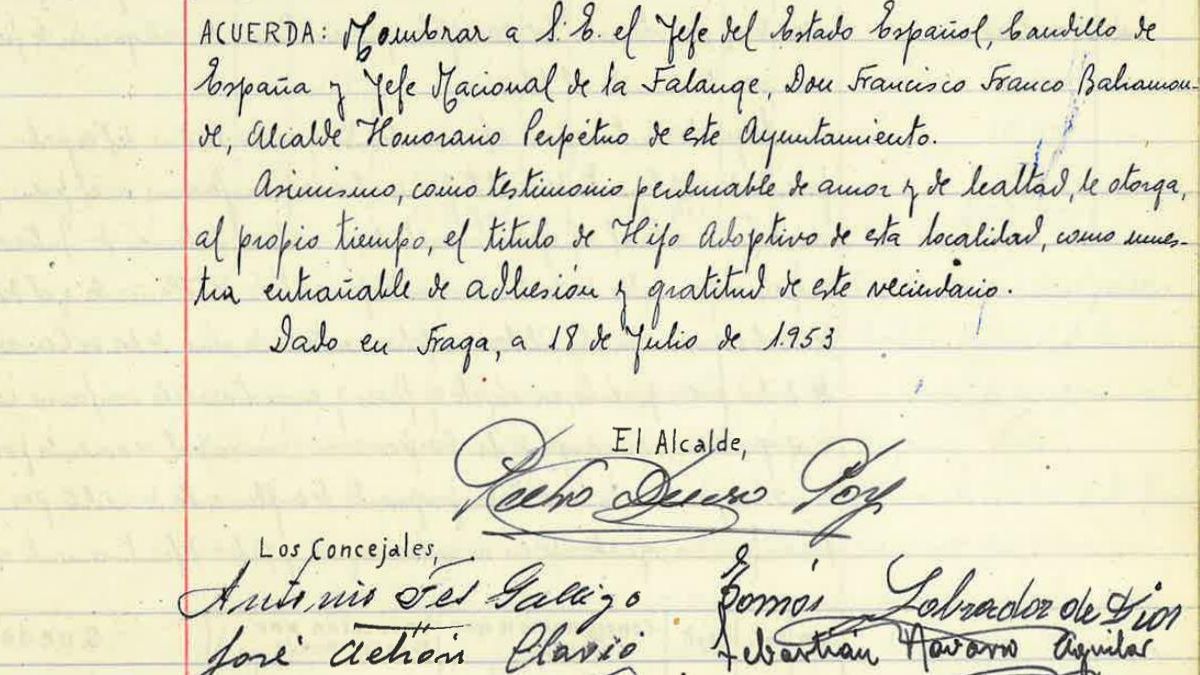 ACUERDA: Nombrar a S. E. el Jefe del Estado Español, Caudillo de
España y Jefe Nacional de la Falange, Don Francisco Franco Bahamon-
de, Alcalde Honorario Perpétuo de este Ayuntamiento.
Asimismo, como testimonio perdurable de amor y de lealtad, le otorga,
al propio tiempo, el titulo de Hijo Adoptivo de esta localidad, como mues-
tra entrañable de adhesión y gratitud de este vecindario.
Dado en Fraga, a 18 de Julio de 1.953
El Alcalde,
Los Concejales,
Antonio Galligo
Labrador de Dios
José
Sebastián Navarro Aguilar